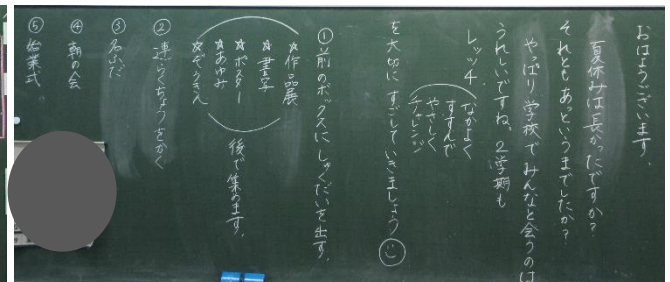 おはようございます。
夏休みは長かったですか？
それともあっというまでしたか？
やっぱり学校でみんなと会うのは
うれしいですね。2学期も
レッツ4
なかよく
すすんで
やさしく
チャレンジ
を大切にすごしていきましょう
①前のボックスにしゅくだいを出す。
☆作品展
☆書写
☆ポスター
☆あゆみ
☆ぞうきん
後で集めます。
②連らくちょうをかく
③名ふだ
④朝の会
⑤始業式